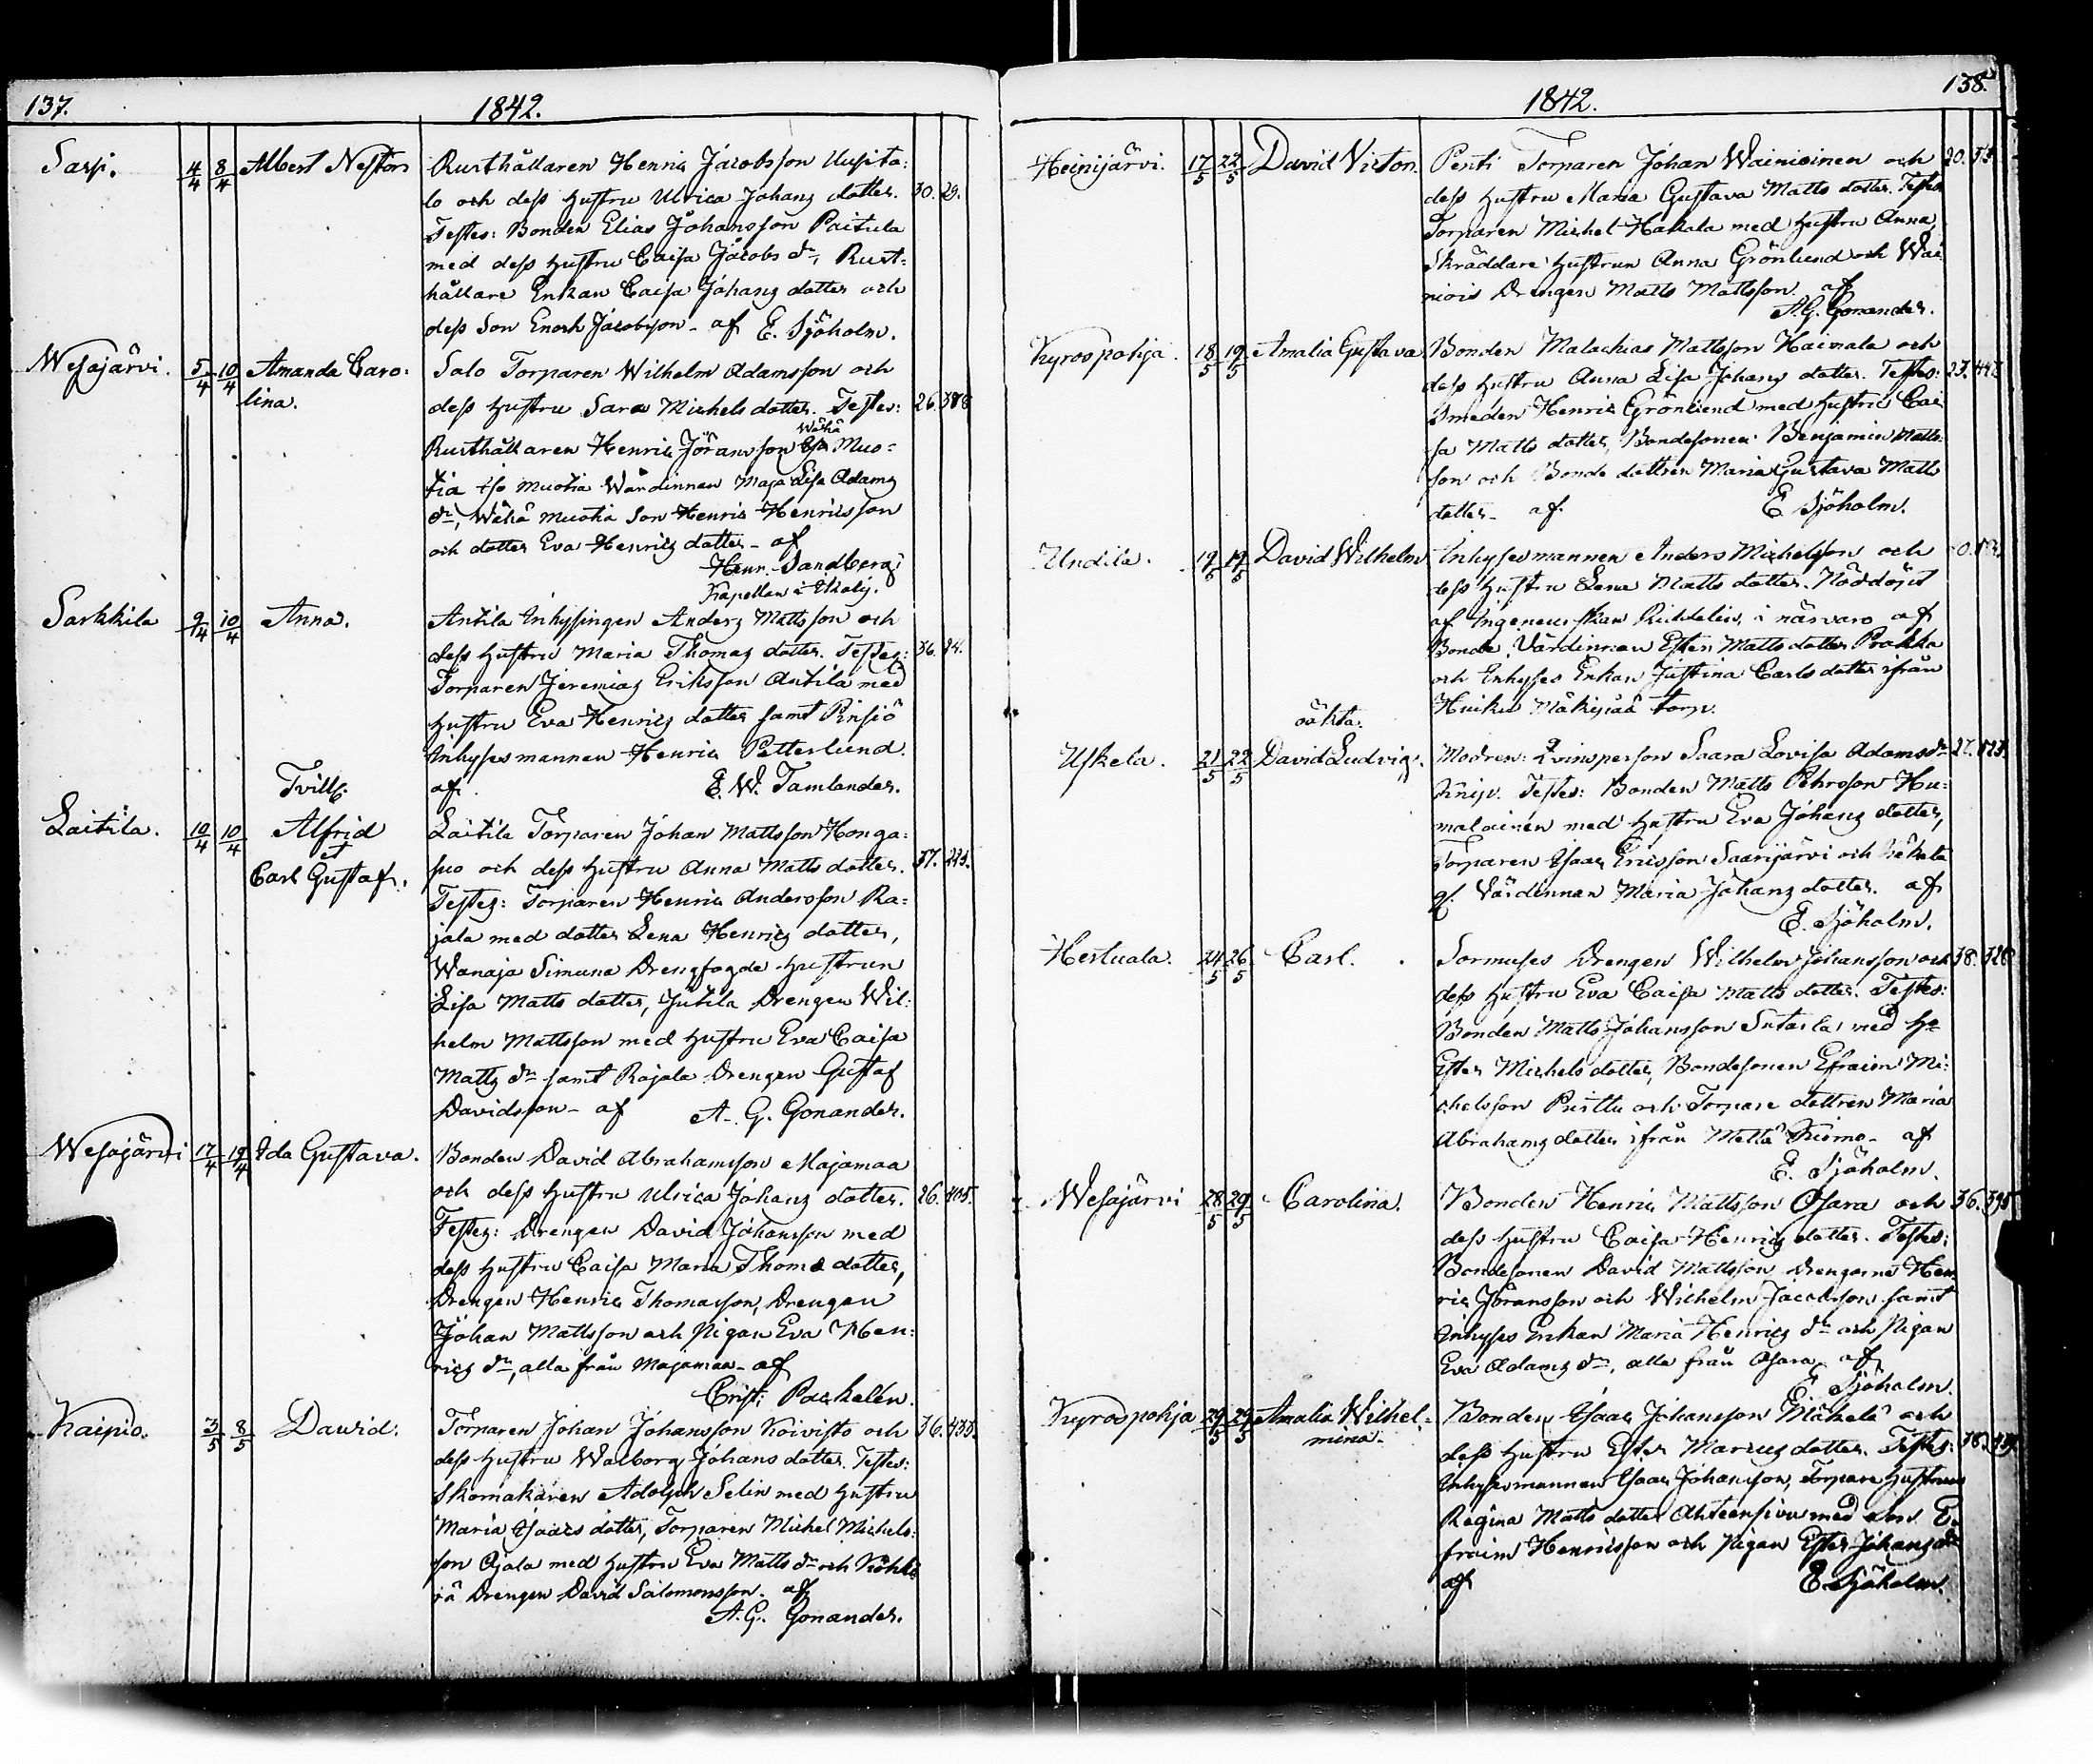 137.
1842.
Sarp.
4/4 8/4 Albert Nestor
Rusthållaren Henric Jacobsson Uusita:
lo och dess hustru Ulrica Johans dotter. 30. 29.
Testes: Bonden Elias Johansson Paitula
med dess hustru Caisa Jacobs dr, Rust:
hållare Enkan Caisa Johans dotter och
dess Son Enoch Jacobsson - af E. Sjöholm.
Wesajärvi. 5/4 10/4 Amanda Caro:
lina.
Salo Torparen Wilhelm Adamsson och
dess hustru Sara Michels dotter. Testes: 26. 378
Wähä
Rusthållaren Henric Göransson Muo:
tia iso Muotia Wärdinnan Maja Lisa Adams
dr, Wähä Muotia Son Henric Henricsson
och dotter Eva Henrics dotter - af
Henr. Sandberg
Kapellan i
Sarkkila 9/4 10/4 Anna.
Antila Inhysingen Anders Mattsson och
dess hustru Maria Thomas dotter. Testes: 36. 94.
Torparen Jeremias Eriksson Antila med
hustru Eva Henrics dotter samt Pinsiö
Inhyses mannen Henric Petterlund.
af E. W. Tamlander.
Laitila. 10/4 10/4 Tvill:
Alfrid
et
Carl Gustaf.
Laitila Torparen Johan Mattsson Honga:
suo och dess hustru Anna Matts dotter. 37.
Testes: Torparen Henric Andersson Ra:
jala med dotter Lena Henrics dotter,
Wanaja Simuna Drengfogde hustrun
Lisa Matts dotter, Jutila Drengen Wil:
helm Mattsson med hustru Eva Caisa
Matts dr samt Rajala Drengen Gustaf
Davidsson - af A. G. Gonander.
Wesajärvi 17/4 19/4 Ida Gustava.
Bonden David Abrahamsson Majamaa
och dess hustru Ulrica Johans dotter. 26. 405.
Testes: Drengen David Johansson med
dess hustru Caisa Maria Thoms dotter,
Drengen Henric Thomasson, Drengen
Johan Mattsson och Pigan Eva Hen:
rics dr, alla från Majamaa - af
Crist: Packalén.
Kaipio. 3/5 8/5 David.
Torparen Johan Johansson Koivisto och 36. 433.
dess hustru Walborg Johans dotter. Testes:
Skomakaren Adolph Selin med hustru
Maria Isaacs dotter, Torparen Michel Michels:
son Ojala med hustru Eva Matts dr och
Drengen David Salomonsson. af
A. G. Gonander.
138.
1842.
Heinijärvi. 17/5 22/5 David Victor.
Penti Torparen Johan Wainioinen och 20. 53.
dess hustru Maria Gustava Matts dotter. Testes
Torparen Michel Hakala med hustru Anna,
Skräddare hustrun Anna Grönlund och Wai
niois Drengen Matts Mattsson. af
A. G. Gonander.
Kyrospohja. 18/5 19/5 Amalia Gustava
Bonden Malachias Mattsson Haimala och
dess hustru Anna Lisa Johans dotter. Testes: 23.
Smeden Henric Grönlund med hustru Cai
sa Matts dotter, Bondesonen Benjamin Matts:
son och Bonde dottren Maria Gustava Matts
dotter - af E. Sjöholm.
Undila. 19/5 19/5 David Wilhelm
Inhyses mannen Anders Michelsson och
dess hustru Lena Matts dotter. Nöddöpt
af Ingeneurskan i närvaro af
Bonde Värdinnan Ester Matts dotter Prakka
och Inhyses Enkan Justina Carls dotter ifrån
Huiku Mäkipää torp.
Uskela. 21/5 22/5 oäkta.
David Ludvig.
Modren: Qvinsperson Saara Lovisa Adams dr 27. 523.
Knip. Testes: Bonden Matts Pehrsson Hu:
malainen med hustru Eva Johans dotter,
Torparen Isaac Ericsson Saarijärvi och
Värdinnan Maria Johans dotter. af
E. Sjöholm.
Hertuala. 24/5 26/5 Carl.
Sormuses Drengen Wilhelm Johansson och 38. 328
dess hustru Eva Caisa Matts dotter. Testes:
Bonden Matts Johansson med hu
Ester Michels dotter, Bondesonen Efraim Mi:
chelsson Prittu och Torpare dottren Maria
Abrahams dotter ifrån - af
E. Sjöholm.
Wesajärvi 28/5 29/5 Carolina.
Bonden Henric Mattsson Osara och 36. 395
dess hustru Caisa Henrics dotter. Testes:
Bondesonen David Mattsson, Drengarne Hen
ric Göransson och Wilhelm Jacobsson samt
Inhyses Enkan Maria Henrics dr och Pigan
Eva Adams dr, alla från Osara - af
E. Sjöholm.
Kyrospohja 29/5 29/5 Amalia Wilhel:
mina.
Bonden Isaac Johansson Mäkelä och
dess hustru Ester Marcus dotter. Testes:
Inhysesmannen Isaac Johansson, Torpare hustrun
Regina Matts dotter Ahteensivu med son E:
fraim Henricsson och Pigan Ester Johans dr
af E. Sjöholm.